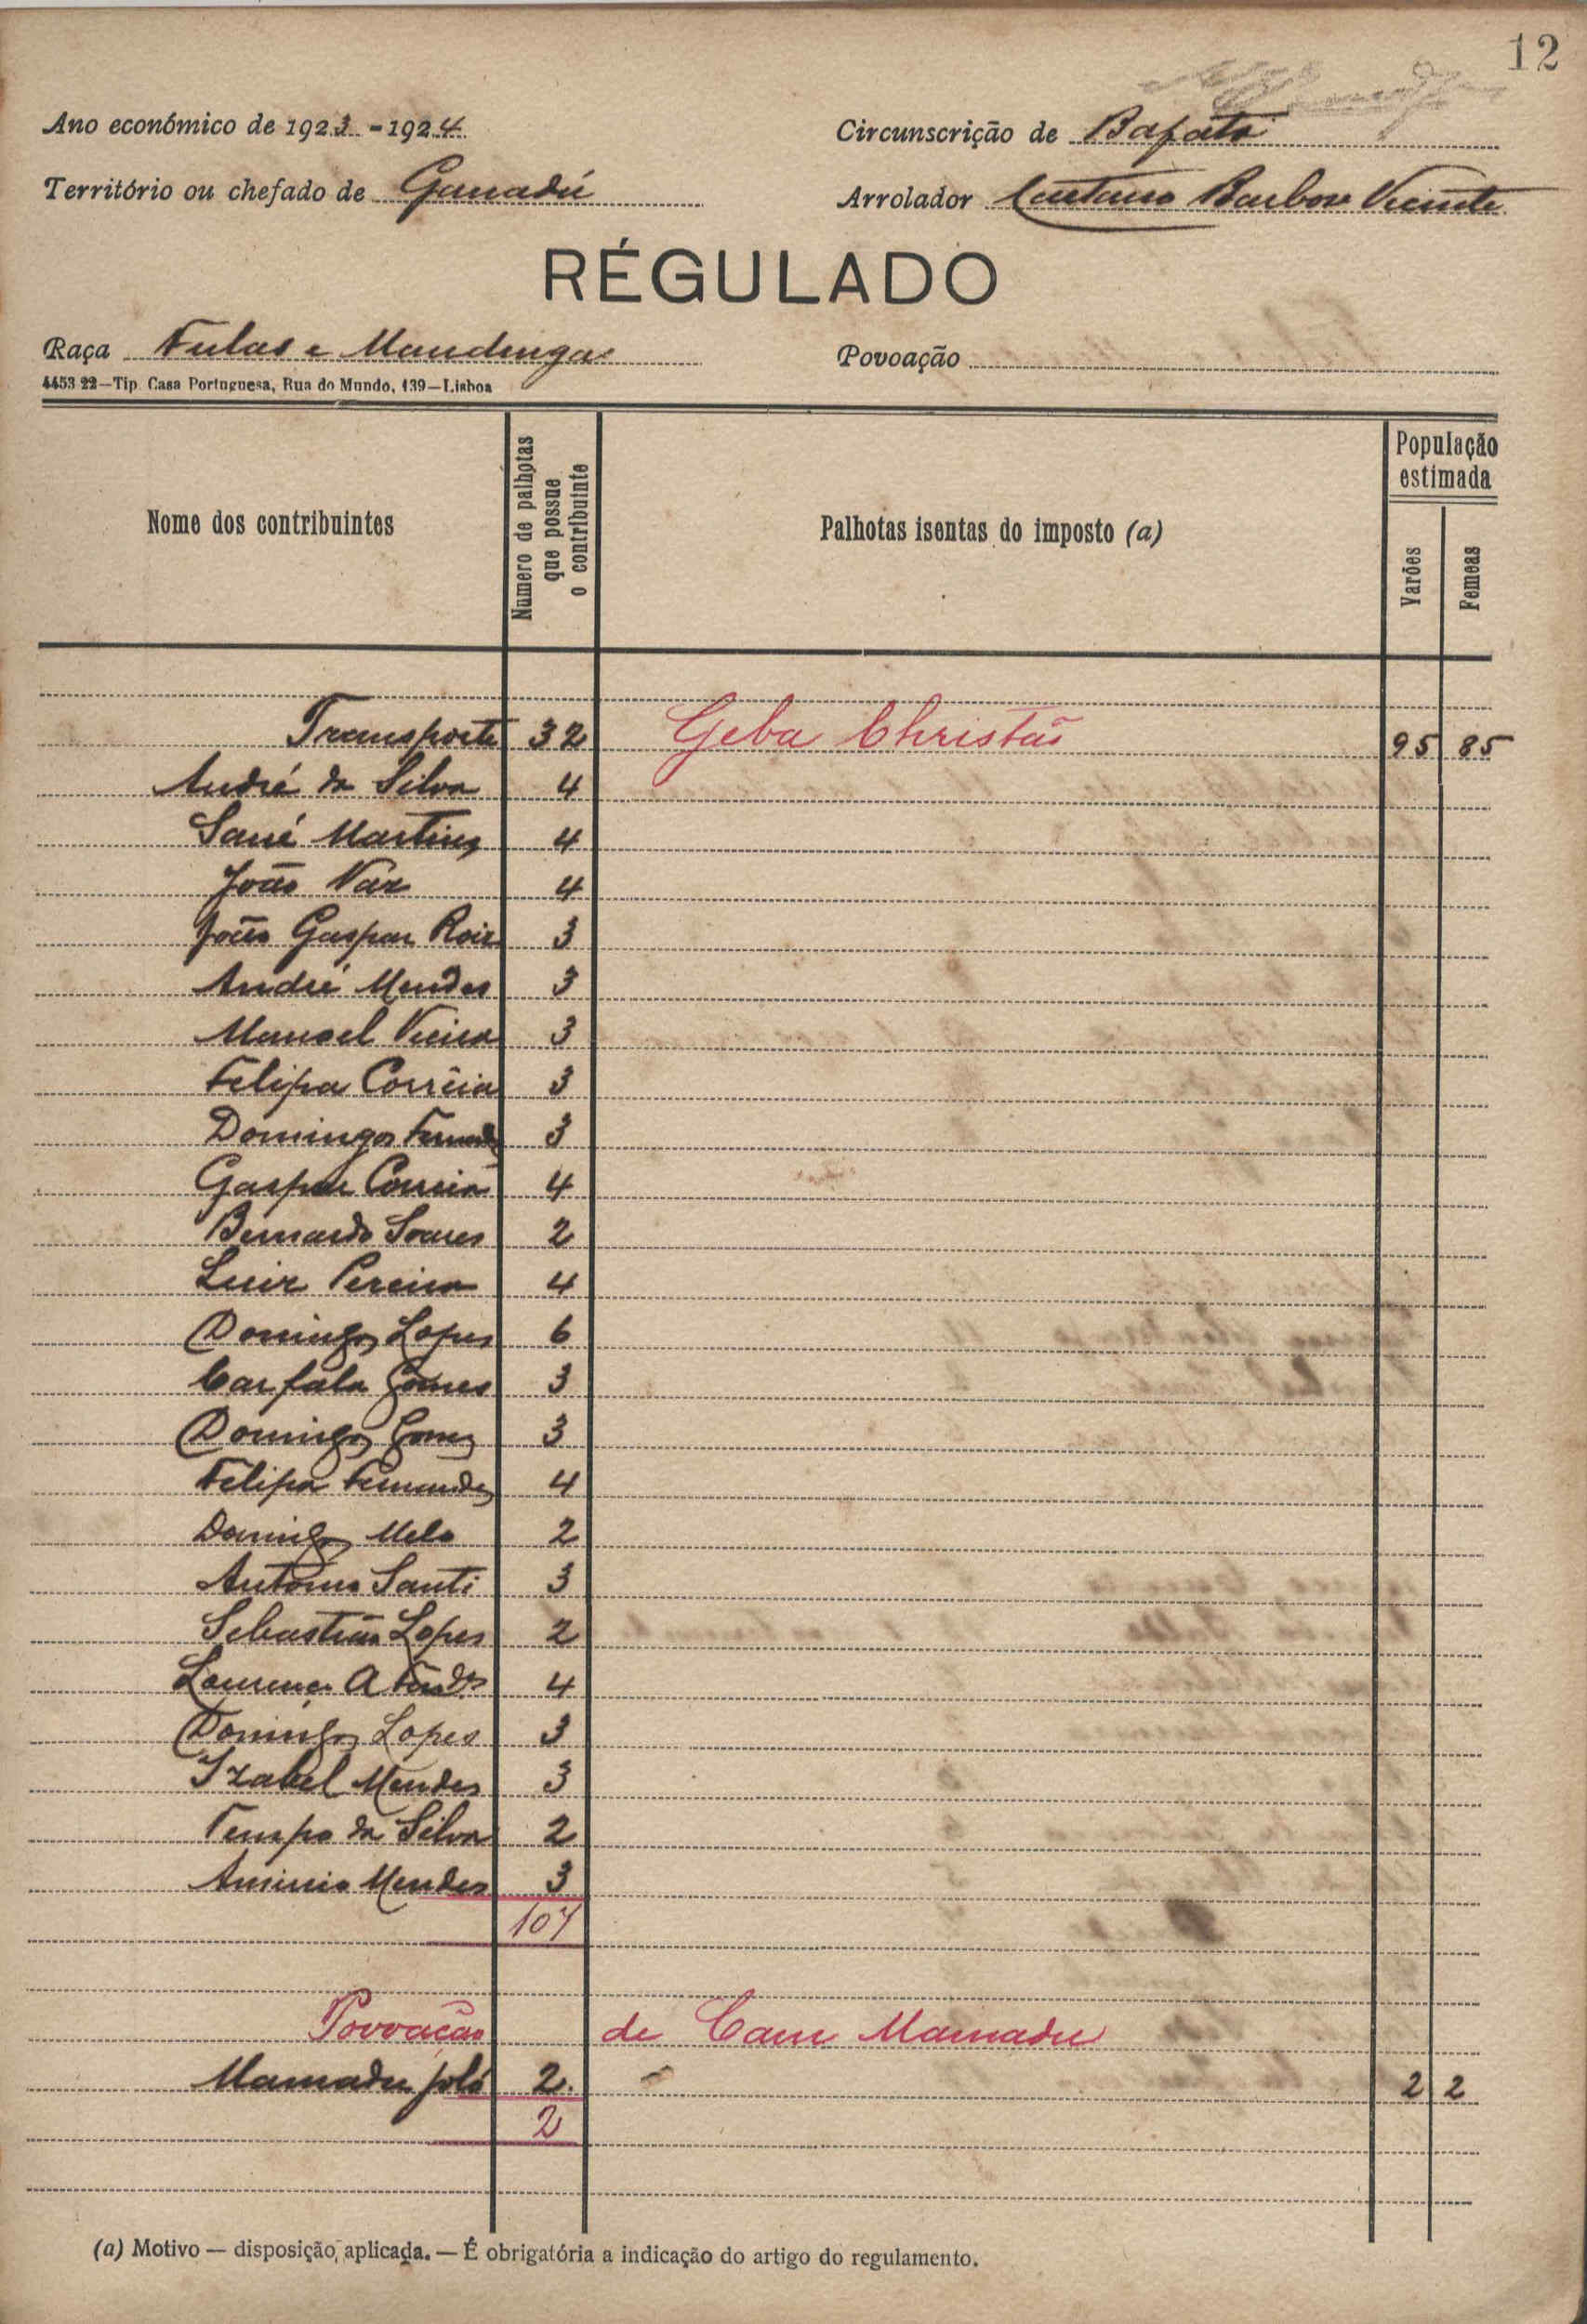 12
Ano económico de 1923 - 1924 Circunscrição de Bafatá
Território ou chefado de Ganadú Arrolador Caetano Barbosa Vicente
RÉGULADO
Raça Fulas e Mandingas Povoação
4453 22—Tip. Casa Portuguesa, Rua do Mundo, 139—Lisboa
Nome dos contribuintes Número de palhotas que possue o contribuinte Palhotas isentas do imposto (a) População estimada Varões Femeas
Transporte 32 Geba Christão 95 85
André da Silva 4
Sané Martins 4
João Vaz 4
João Gaspar Roiz 3
André Mendes 3
Manoel Vieira 3
Felipa Corrêia 3
Domingos Fernandes 3
Gaspar Correia 4
Bernardo Soares 2
Luiz Pereira 4
Domingos Lopes 6
Carfala Gomes 3
Domingos Gomes 3
Felipa Fernandes 4
Domingos Melo 2
Antonio Santi 3
Sebastião Lopes 2
Lourenço A Fernds 4
Domingos Lopes 3
Izabel Mendes 3
Tempo da Silva 2
Mendes 3
107
Povoação de Cam Mamadu
Mamadu Joló 2. 2 2
2
(a) Motivo — disposição, aplicada. — É obrigatória a indicação do artigo do regulamento.